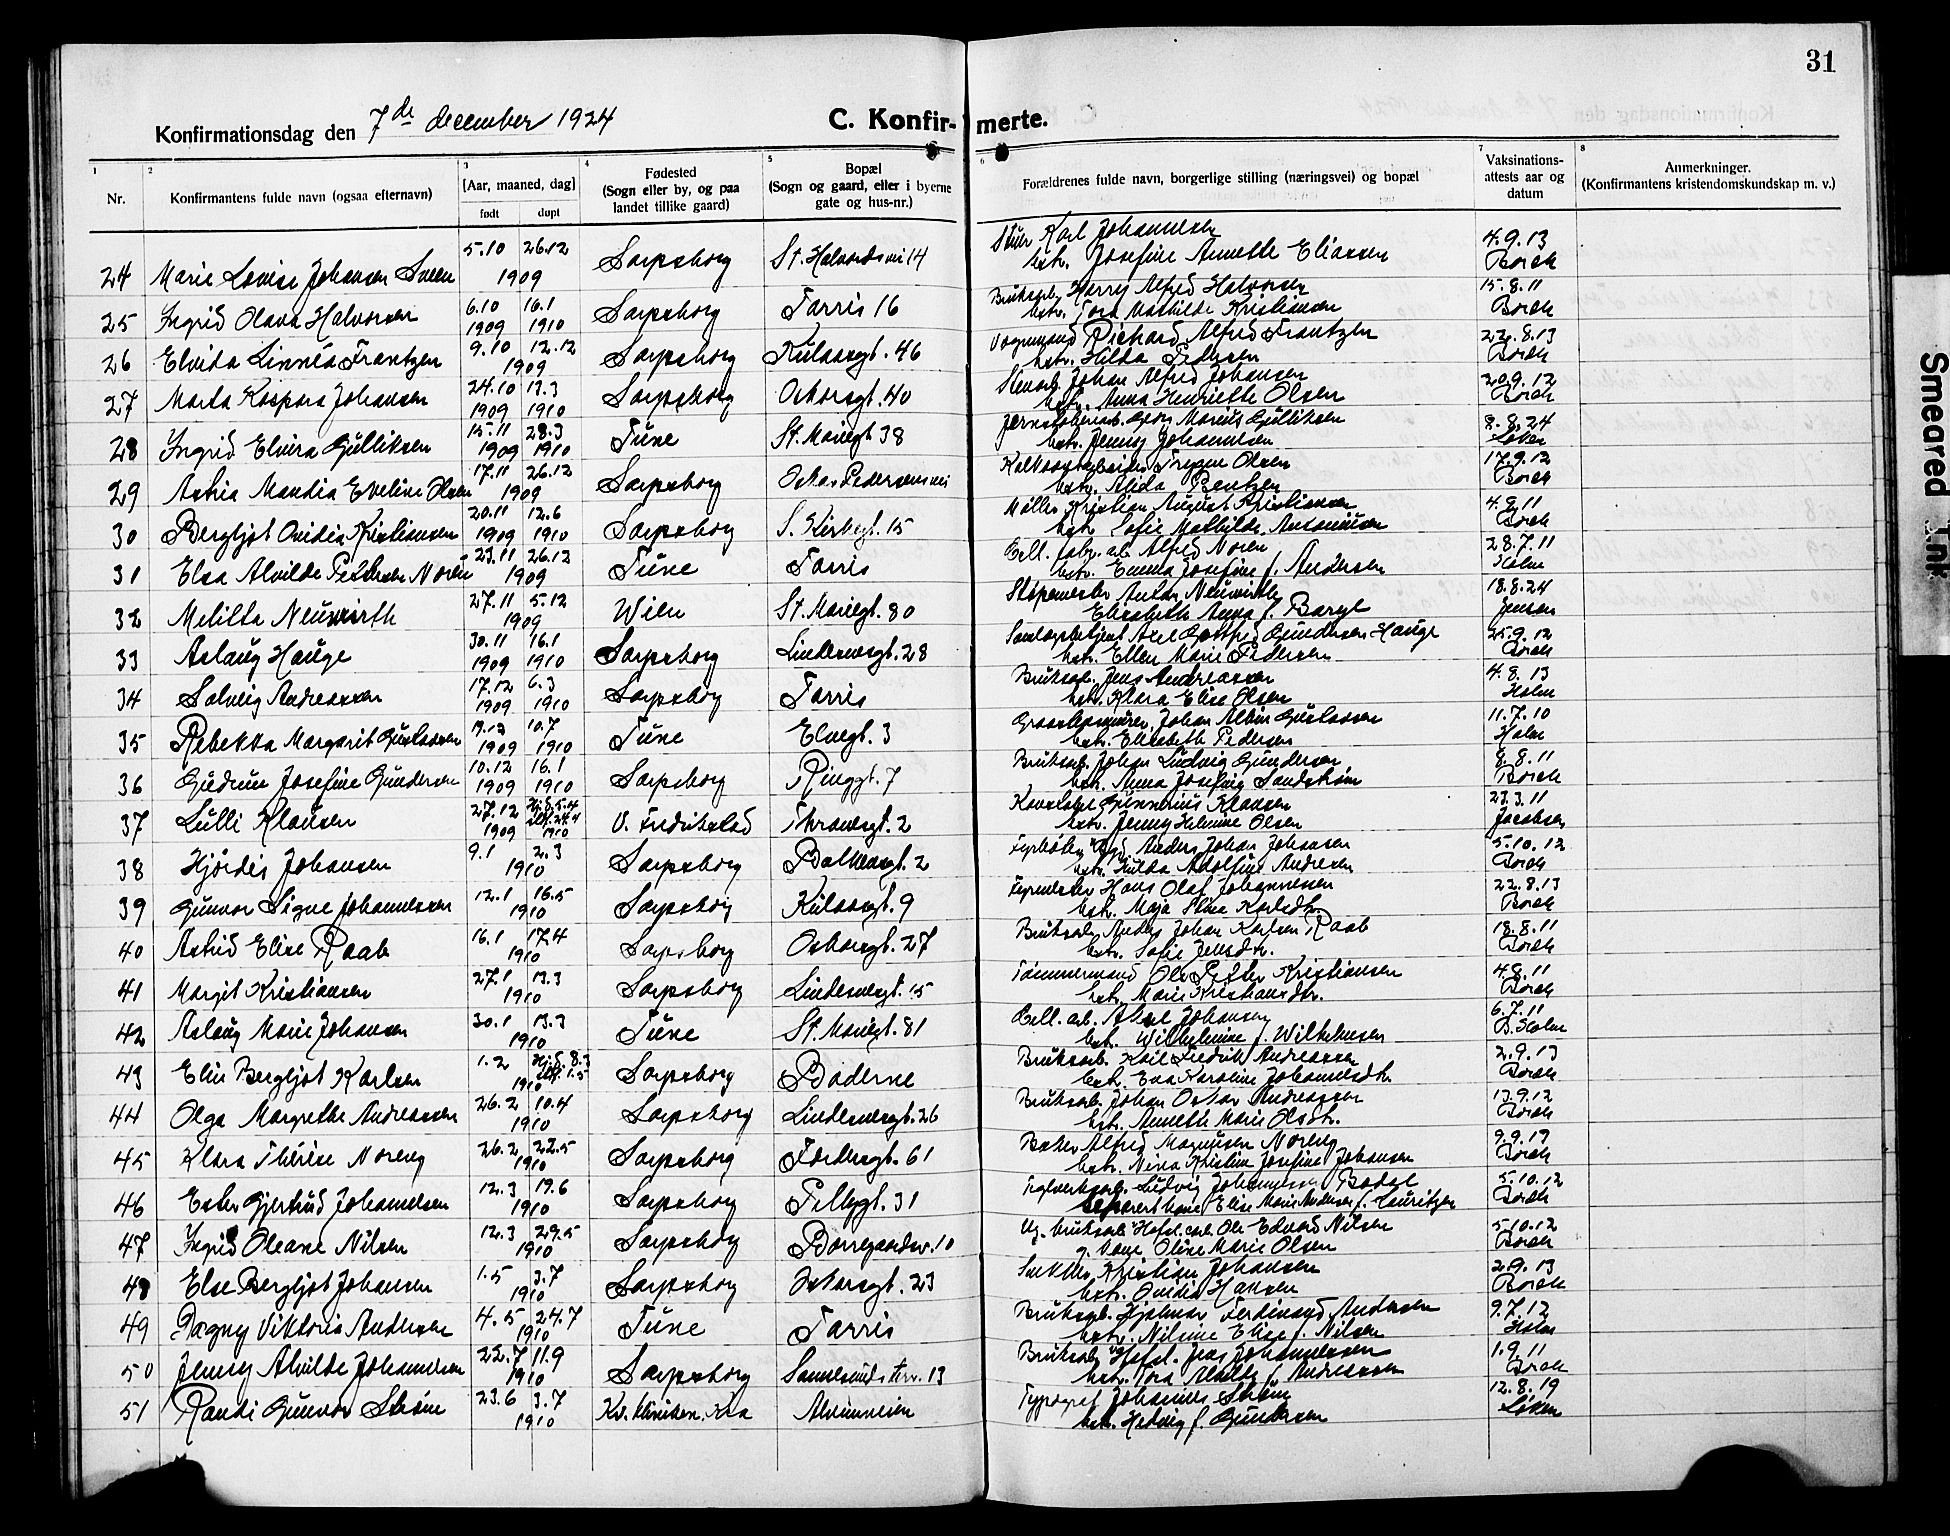 31
Konfirmationsdag den 7de december 1924
C. Konfir- merte.
1 2 3 4 5 6 7 8
Nr.
Konfirmantens fulde navn (ogsaa efternavn)
[Aar, maaned, dag]
født døpt
Fødested
(Sogn eller by, og paa
landet tillike gaard)
Bopæl
(Sogn og gaard, eller i byerne
gate og hus-nr.)
Forældrenes fulde navn, borgerlige stilling (næringsvei) og bopæl
Vaksinations-
attests aar og
datum
Anmerkninger.
(Konfirmantens kristendomskundskap m. v.)
24 Marie Lovise Johansen Sveen 5.10 26.12 1909 Sarpsborg St. Halvordsvei 14 Karl Johannesen 4.9.13
hstr. Josefine Annette Eliassen Borch
25 Ingrid Olava Halvorsen 6.10 1909 16.1 1910 Sarpsborg Tarris 16 Bruksarb. Herry Alfred Halvorsen 15.8.11
hstr. Tora Mathilde Kristiansen Borch
26 Elvida Linnéa Frantzen 9.10 12.12 1909 Sarpsborg Kulaasgt. 46 Vognmand Richard Alfred Frantzen 22.8.13
hstr. Hilda Pedersen Borch
27 Marta Kaspara Johansen 24.10 1909 13.3 1910 Sarpsborg Oskarsgt. 40 Johan Alfred Johansen 20.9.12
hstr. Anna Henriette Olsen Borch
28 Ingrid Elvira Gulliksen 15.11 1909 28.3 1910 Tune St. Mariegt 38 Jernstøberiarb. Georg Marius Gulliksen 8.8.24
hstr. Jenny Johannesen Løken
29 Astria Mandia Eveline Olsen 17.11 26.12 1909 Sarpsborg Oskar Pedersensvei Trygve Olsen 17.9.12
hstr. Alida Bentzen Borch
30 Bergljot Ovidia Kristiansen 20.11 1909 12.6 1910 Sarpsborg S. Kirkegt. 15 Møller Kristian August Kristiansen 4.9.11
hstr. Sofie Mathilde Antonisen Borch
31 Elsa Alvilde Pettersen Norén 23.11 26.12 1909 Tune Tarris Cell. fabr. arb. Alfred Noren 28.7.11
hstr. Emma Josefine f. Andersen Holm
32 Melitta Neuwirth 27.11 5.12 1909 Wien St. Mariegt. 80 Støpemester Anton Neuwirth 18.8.24
Elisabeth Anna f. Baryl Jensen
33 Aslaug Hauge 30.11 1909 16.1 1910 Sarpsborg Lindemansgt. 28 Axel Gotfred Gundersen Hauge 25.9.12
hstr. Ellen Marie Pedersen Borch
34 Solveig Andreassen 17.12 1909 6.3 1910 Sarpsborg Tarris Bruksarb. Jens Andreassen 4.8.13
hstr. Klara Elise Olsen Holm
35 Rebekka Margarit Gustavsen 19.12 1909 10.7 1910 Tune Elvegt. 3 Johan Albin Gustavsen 11.7.10
hstr. Elisabeth Pedersen Holm
36 Gudrun Josefine Gundersen 10.12 1909 16.1 1910 Sarpsborg Ringgt. 7 Bruksarb. Johan Ludvig Gundersen 8.8.11
hstr. Anna Josefine Sandstrøm Borch
37 Lulli Klausen 27.12 1909 Hj.d. 5.4 24.4 1910 V. Fredrikstad Thranesgt. 2 Gunnerius Klausen 23.3.11
hstr. Jenny Helmine Olsen Jacobsen
38 Hjørdis Johansen 9.1 2.3 1910 Sarpsborg Balkensgt. 2 Fyrbøter Anders Johan Johansen 5.10.12
hstr. Hulda Adolfine Andresen Borch
39 Gunvor Signe Johannessen 12.1 16.5 1910 Sarpsborg Kulaasgt. 9 Hans Olaf Johannessen 22.8.13
hstr. Maja Stina Karlsdtr. Borch
40 Astrid Elise Raab 16.1 17.4 1910 Sarpsborg Oskarsgt. 27 Bruksarb. Anders Johan Karlsen Raab 18.8.11
hstr. Sofie Jensdtr. Borch
41 Margit Kristiansen 27.1 13.3 1910 Sarpsborg Lindemsgt. 15 Tømmermand Ole Petter Kristiansen 4.8.11
hstr. Marie Kristiansdtr. Borch
42 Aslaug Marie Johansen 30.1 13.3 1910 Tune St. Mariegt. 81 Cell. arb. Aksel Johansen 6.7.11
hstr. Wilhelmine f. Wilhelmsen B. Holm
43 Elin Bergljot Karlsen 1.2 Hj.d. 8.3 1.5 1910 Sarpsborg Baderne Bruksarb. Karl Fredrik Andreassen 2.9.13
hstr. Eva Karoline Johannesdtr Borch
44 Olga Margrethe Andreassen 26.2 10.4 1910 Sarpsborg Lindemansgt. 26 Bruksarb. Johan Oskar Andreassen 13.9.12
hstr. Annette Marie Olsdtr. Borch
45 Klara Thérèse Noreng 26.2 22.5 1910 Sarpsborg Fordensgt. 61 Baker Alfred Magnusen Noreng 9.9.19
hstr. Nina Kristine Josefine Johansen Borch
46 Ester Gjertrud Johannesen 12.3 19.6 1910 Sarpsborg Pellygt. 31 Ludvig Johannesen Bodal 5.10.12
Elise Marie Andersen f. Lauritzen Borch
47 Ingrid Oleane Nilsen 12.3 29.5 1910 Sarpsborg Borregaardsv. 10 Ug. bruksarb. Hafsl. carb. Ole Edvard Nilsen 5.10.12
g. Vaag. Oline Marie Olsen Borch
48 Else Bergljot Johansen 1.5 3.7 1910 Sarpsborg Oskarsgt. 23 Snekker Kristian Johansen 2.9.13
hstr. Ovidia Hansen Borch
49 Dagny Viktoria Andersen 4.5 24.7 1910 Tune Tarris Bruksarb. Hjalmar Ferdinand Andersen 9.7.12
hstr. Nilsine Elise f. Nilsen Holm
50 Jenny Alvilde Johannesen 22.7 11.9 1910 Sarpsborg Sannesundsterv. 13 Bruksarb. v/ Hafsl. Jens Johannessen 1.9.11
hstr. Tora Alvilde f. Andreassen Borch
51 Randi Gunvor Strøm 23.6 3.7 1910 Kv. kliniken, Kra Alvimveien Typograf Johannes Strøm 12.8.19
hstr. Hedvig f. Gundersen Løken
Smeared Ink